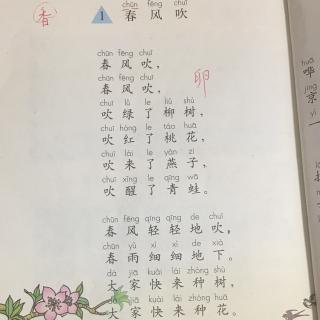 春
chūn fēng chuī
1 春风吹
chūn fēng chuī
春风吹，
chūn fēng chuī
春风吹，
卵
chuī lǜ le liǔ shù
吹绿了柳树，
chuī hóng le táo huā
吹红了桃花，
chuī lái le yàn zi
吹来了燕子，
chuī xǐng le qīng wā
吹醒了青蛙。
chūn fēng qīng qīng de chuī
春风轻轻地吹，
chūn yǔ xì xì de xià
春雨细细地下。
dà jiā kuài lái zhòng shù
大家快来种树，
dà jiā kuài lái zhòng huā
大家快来种花。
huā
哗
jīng
京
yí
一